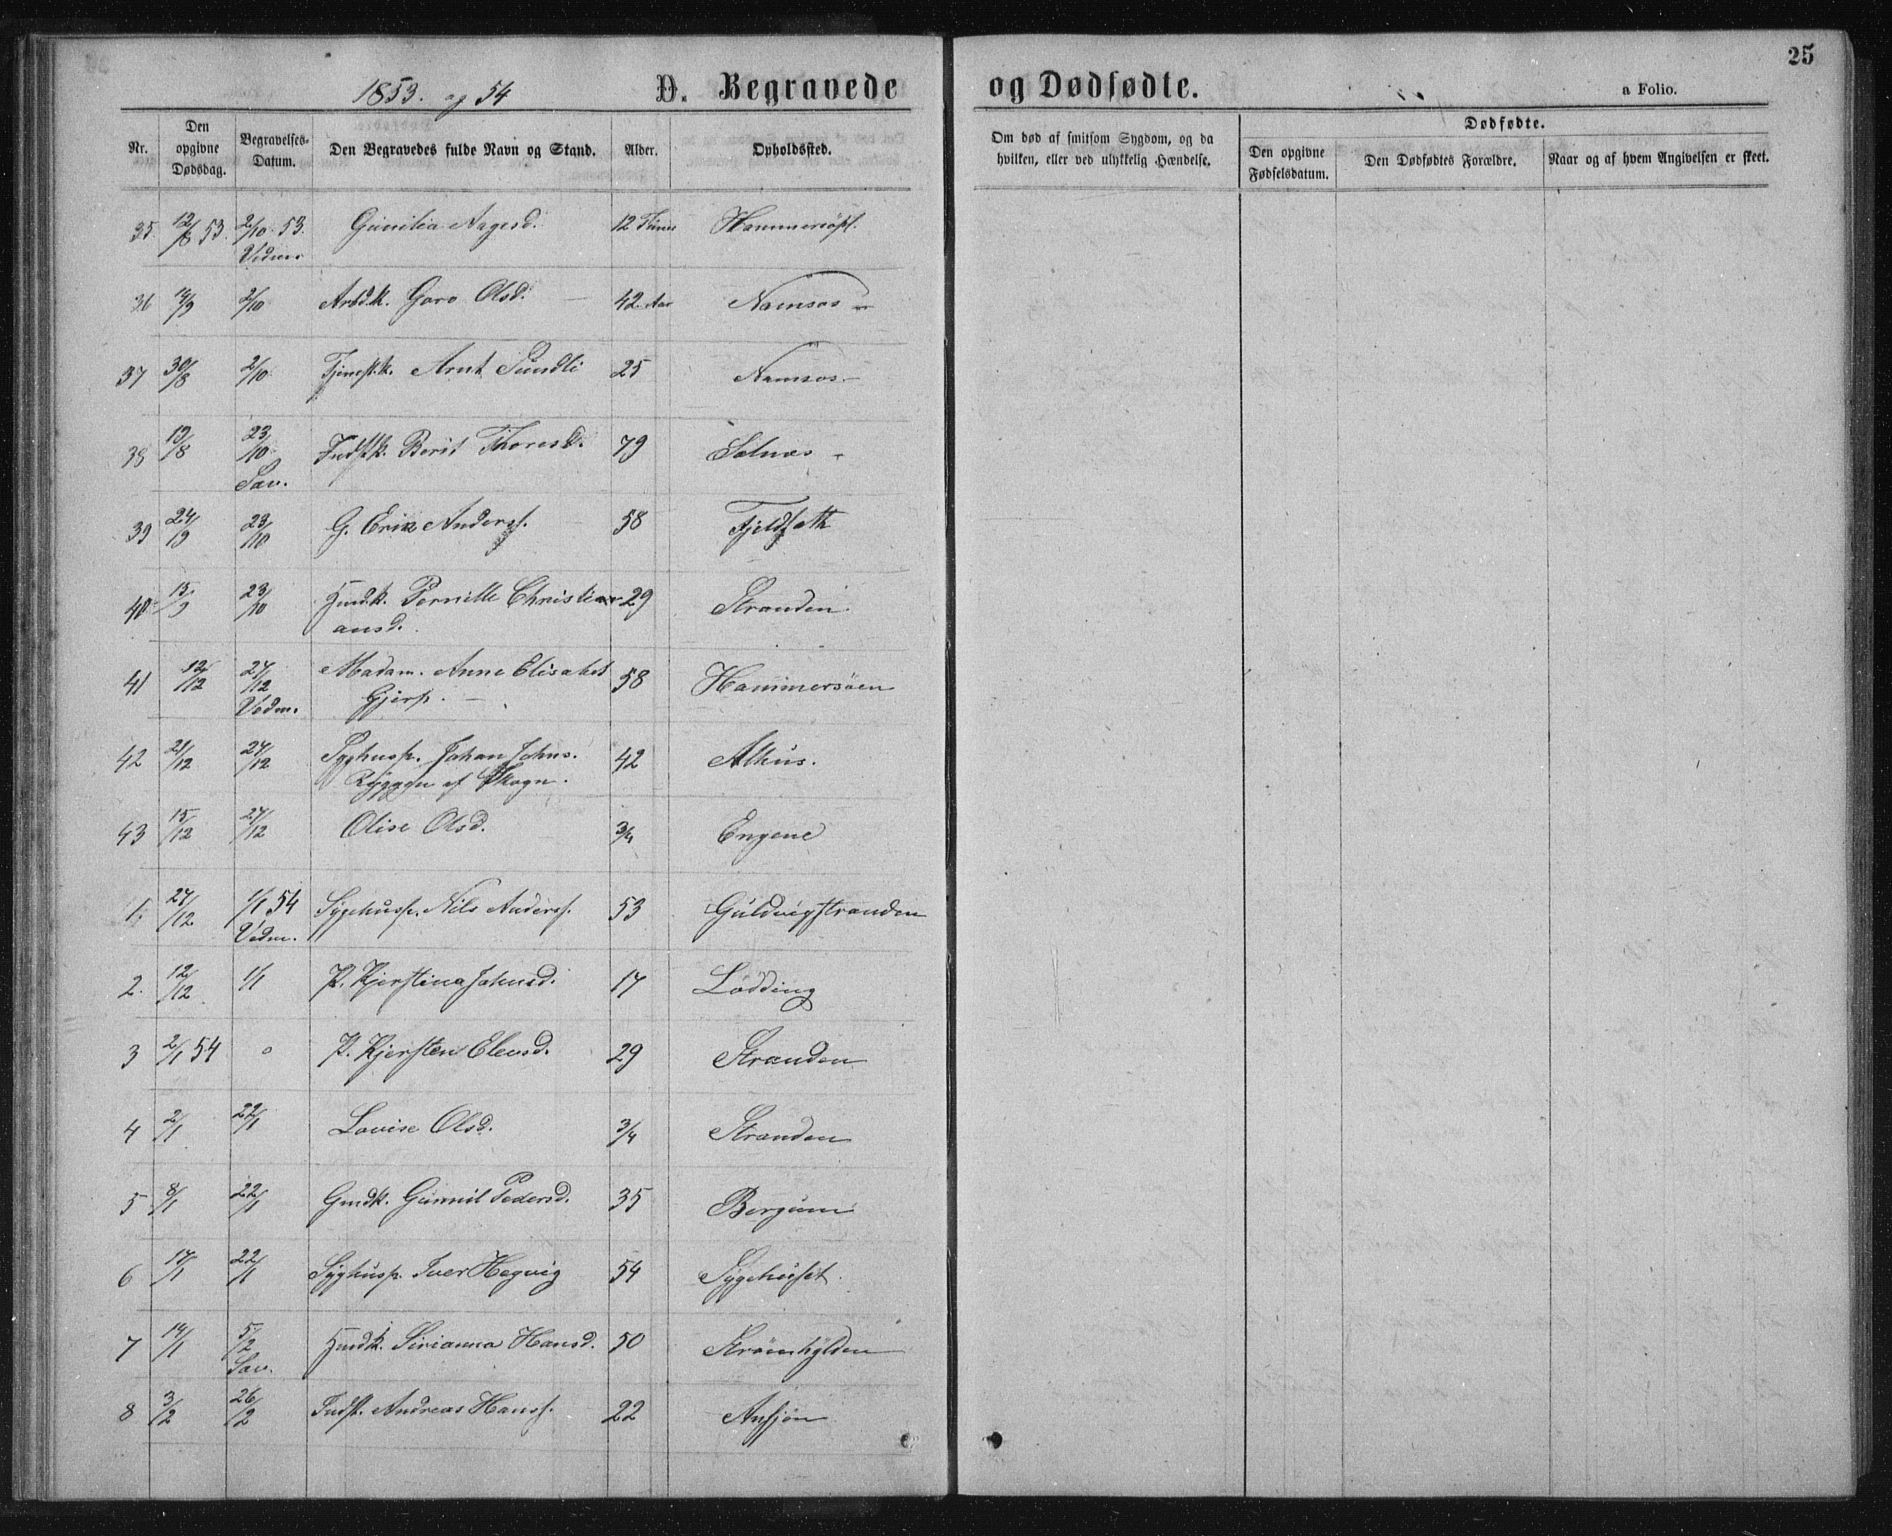 25
1853. og 54 D. Begravede og Dødfødte. a Folio.
Nr. Den opgivne Dødsdag. Begravelses-Datum. Den Begravedes fulde Navn og Stand. Alder. Opholdssted. Om død af smitsom Sygdom, og da hvilken, eller ved ulykkelig Hændelse. Dødfødte. Den opgivne Fødselsdatum. Den Dødfødtes Forældre. Naar og af hvem Angivelsen er skeet.
35 12/8 53. 2/10 53. Gunilia Aagesd. 12 Hammersöpl.
36 14/9 2/10 Arbdk. Goro Olsd. — 42 Aar Namsos —
37 30/8 2/10 Tjenestk. Arnt Sundli 25 Namsos —
38 19/8 23/10 Indstk. Berit Thoresd. 79 Selnæs -
Sav.
39 24/9 23/10 G. Erik Anders. 58 Fjeldsæth
40 15/9 23/10 Hmdk. Pernille Christi- 29 Stranden.
ansd.
41 12/12 27/12 Madam. Anne Elisabet 58 Hammersöen
Vedm. Gjers. —
42 21/12 27/12 Syghusp. Johan Johns. 42 Alhus.
Ryggen af Skogn.
43 15/12 27/12 Olise Olsd. 3/4 Engene
1. 27/12 1/1 54 Sygehusp. Nils Anders. 53 Guldvigstranden
Vedm.
2. 12/12 1/1 P. Kjerstina Johnsd. 17 Lödding
3 2/1 54 P. Kjersten Elensd. 29 Stranden
4 2/1 22/1 Lovise Olsd. 3/4 Stranden
5 8/1 22/1 Gmdk. Gunnil Pedersd. 35 Bergum
6 17/1 22/1 Syghusp. Iver Hegvig 54 Sygehuset.
7 14/1 5/2 Hmdk. Sirianna Hansd. 50 Strömhylden
Sav.
8 3/2 26/2 Indst. Andreas Hans. 22 Ansjön